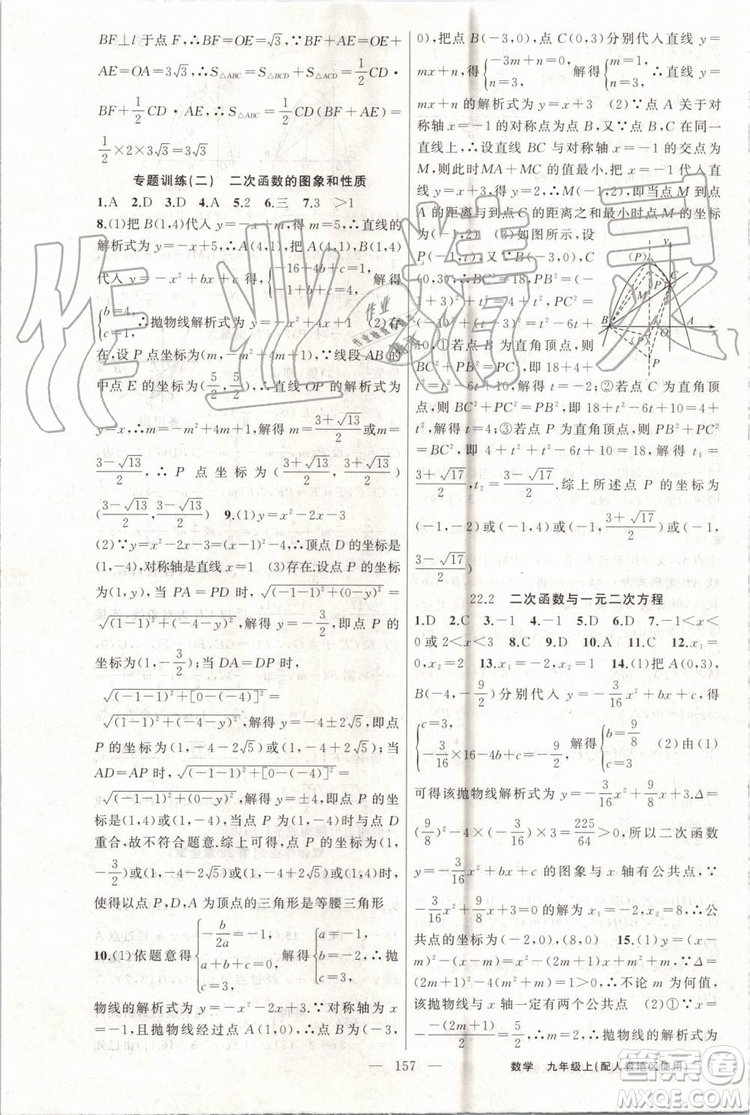 BF⊥l于点F,∴BF=OE=√3,∴BF+AE=OE+
AE=OA=3√3,∴S△ABC=S△BCD+S△ACD=1/2CD·
BF+1/2CD·AE,∴S△ABC=1/2CD(BF+AE)=
1/2×2×3√3=3√3
专题训练(二) 二次函数的图象和性质
1.A 2.D 3.D 4.A 5.2 6.三 7.3 >1
8.(1)把B(1,4)代入y=-x+m,得m=5,∴直线的
解析式为y=-x+5,∴A(4,1),把A(4,1),B(1,4)
代入y=-x²+bx+c,得{-16+4b+c=1, -1+b+c=4, 解得
{b=4, c=1, ∴抛物线解析式为y=-x²+4x+1 (2)存
在,设P点坐标为(m,-m²+4m+1),∵线段AB的
中点E的坐标为(5/2,5/2),∴直线OP的解析式为
y=x,∴m=-m²+4m+1,解得m=(3+√13)/2或m=
(3-√13)/2,∴P点坐标为((3+√13)/2,(3+√13)/2)或
((3-√13)/2,(3-√13)/2) 9.(1)y=x²-2x-3
(2)∵y=x²-2x-3=(x-1)²-4,∴顶点D的坐标是
(1,-4),对称轴是直线x=1 (3)存在.设点P的坐
标是(1,y),当PA=PD时,
√((-1-1)²+(0-y)²)=√((1-1)²+(-4-y)²),解得y=-3/2,即点P的
坐标为(1,-3/2);当DA=DP时,
√((-1-1)²+[0-(-4)]²)=
√((1-1)²+(-4-y)²),解得y=-4±2√5,即点
P的坐标为(1,-4-2√5)或(1,-4+2√5);当
AD=AP时,√((-1-1)²+[0-(-4)]²)=
√((-1-1)²+(0-y)²),解得y=±4,即点P的坐标
是(1,4)或(1,-4),当点P为(1,-4)时与点D
重合,故不符合题意.综上可得,存在点P为(1,-
3/2)或(1,-4+2√5)或(1,-4-2√5)或(1,4)时,
使得以点P,D,A为顶点的三角形是等腰三角形
10.(1)依题意得{-b/2a=-1, a+b+c=0, c=3, 解得{a=-1, b=-2, c=3, ∴抛
物线的解析式为y=-x²-2x+3.∵对称轴为x=
-1,且抛物线经过点A(1,0),∴点B为(-3,
0),把点B(-3,0),点C(0,3)分别代入直线y=
mx+n,得{-3m+n=0, n=3, 解得{m=1, n=3, ∴直线y=
mx+n的解析式为y=x+3 (2)∵点A关于对
称轴x=-1的对称点为B,又∵A,B,C不在同一
直线上,∴直线BC与对称轴x=-1的交点为
M,此时MA+MC的值最小,把x=-1代入直线
y=x+3,得y=2,∴M(-1,2),即当点M到点
A的距离与到点C的距离之和最小时点M的坐标
为(-1,2) (3)如图所示,设
P(-1,t),又∵B(-3,0),C
(0,3),∴BC²=18,PB²=
(-1+3)²+t²=4+t²,PC²=
(-1)²+(t-3)²=t²-6t+
10,①若点B为直角顶点,则
BC²+PB²=PC²,即18+4+t²=t²-6t+10,解得
t=-2;②若点C为直角顶
点,则BC²+PC²=PB²,即18+t²-6t+10=4+
t²,解得t=4;③若点P为直角顶点,则PB²+PC²
=BC²,即4+t²+t²-6t+10=18,解得t₁=
(3+√17)/2,t₂=(3-√17)/2.综上所述点P的坐标为
(-1,-2)或(-1,4)或(-1,(3+√17)/2)或(-1,
(3-√17)/2)
22.2 二次函数与一元二次方程
1.D 2.C 3.-1 4.-1 5.D 6.C 7.-1<x<
0或2<x<3 8.D 9.B 10.A 11.C 12.x₁=
0,x₂=2 13.x₁=-1,x₂=5 14.(1)把A(0,3),
B(-4,-9/2)分别代入y=-3/16x²+bx+c,得
{c=3, -3/16×16-4b+c=-9/2, 解得{b=9/8, c=3 (2)由(1)
可得该抛物线解析式为y=-3/16x²+9/8x+3.Δ=
(9/8)²-4×(-3/16)×3=225/64>0,所以二次函数y=
-3/16x²+bx+c的图象与x轴有公共点.∵
-3/16x²+9/8x+3=0的解为x₁=-2,x₂=8,∴公
共点的坐标是(-2,0),(8,0) 15.(1)y=(x-
m)²-(x-m)=x²-(2m+1)x+m²+m,∵Δ=
(2m+1)²-4(m²+m)=1>0,∴不论m为何值,
该抛物线与x轴一定有两个公共点 (2)①∵x=
-(-(2m+1))/2=5/2,∴m=2,∴抛物线的解析式为
— 157 — 数学 九年级上(配人教地区使用)
作业精灵